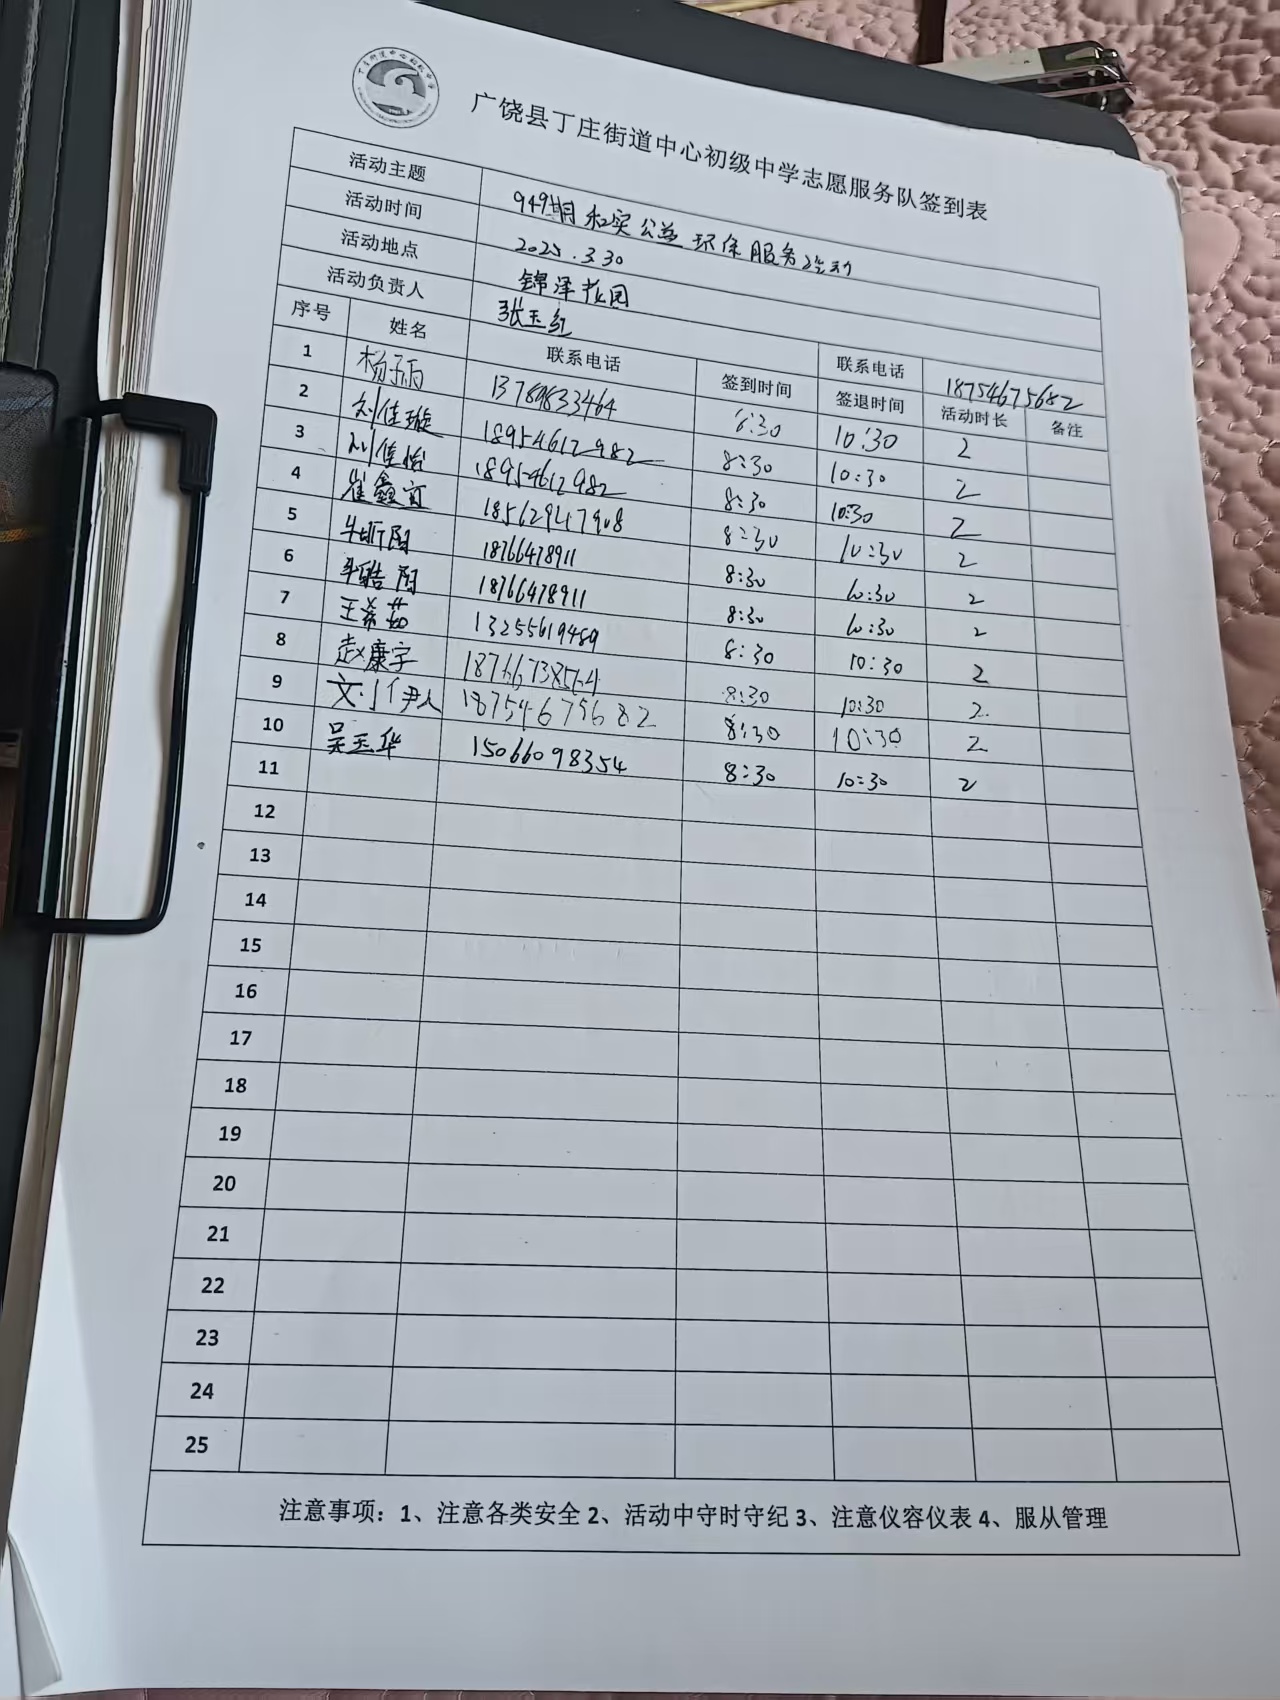 广饶县丁庄街道中心初级中学志愿服务队签到表
活动主题 949期和实公益环保服务活动
活动时间 2025.3.30
活动地点 锦泽花园
活动负责人 张玉红 联系电话 18754675682
序号 姓名 联系电话 签到时间 签退时间 活动时长 备注
1 杨子雨 13789833464 8:30 10:30 2
2 刘佳璇 18954612982 8:30 10:30 2
3 刘佳怡 18954612982 8:30 10:30 2
4 崔鑫宜 18562947908 8:30 10:30 2
5 牛昕阳 18766478911 8:30 10:30 2
6 牛皓阳 18766478911 8:30 10:30 2
7 王希茹 13255619489 8:30 10:30 2
8 赵康宇 18766738564 8:30 10:30 2
9 文刂伊人 18754675682 8:30 10:30 2
10 吴玉华 15066098354 8:30 10:30 2
11
12
13
14
15
16
17
18
19
20
21
22
23
24
25
注意事项：1、注意各类安全 2、活动中守时守纪 3、注意仪容仪表 4、服从管理